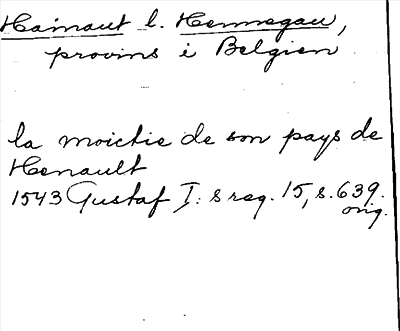 Hainaut l. Hennegau,
provins i Belgien
la moictie de son pays de
Henault
1543 Gustaf I: s reg. 15, s. 639.
orig.